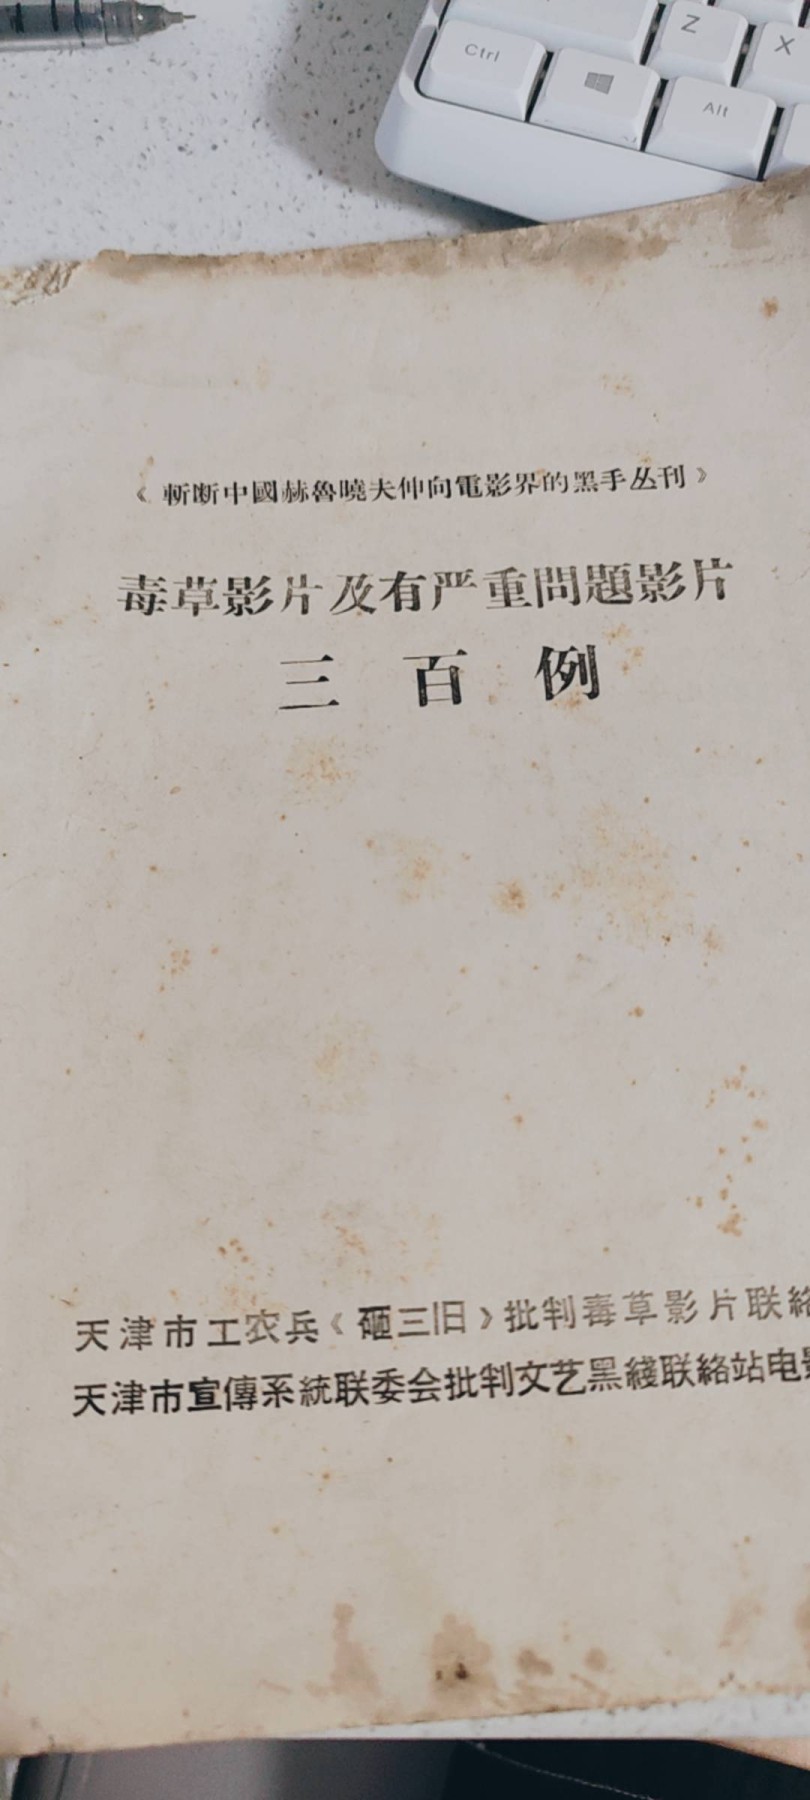 Ctrl
Alt
Z
X
《斬断中國赫魯曉夫伸向電影界的黑手丛刊》
毒草影片及有严重問題影片
三百例
天津市工农兵《砸三旧》批判毒草影片联絡
天津市宣傳系統联委会批判文艺黑綫联絡站电影